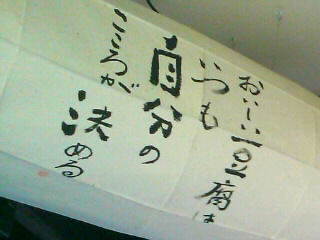 おいしい豆腐は
いつも
自分の
こころが
決める